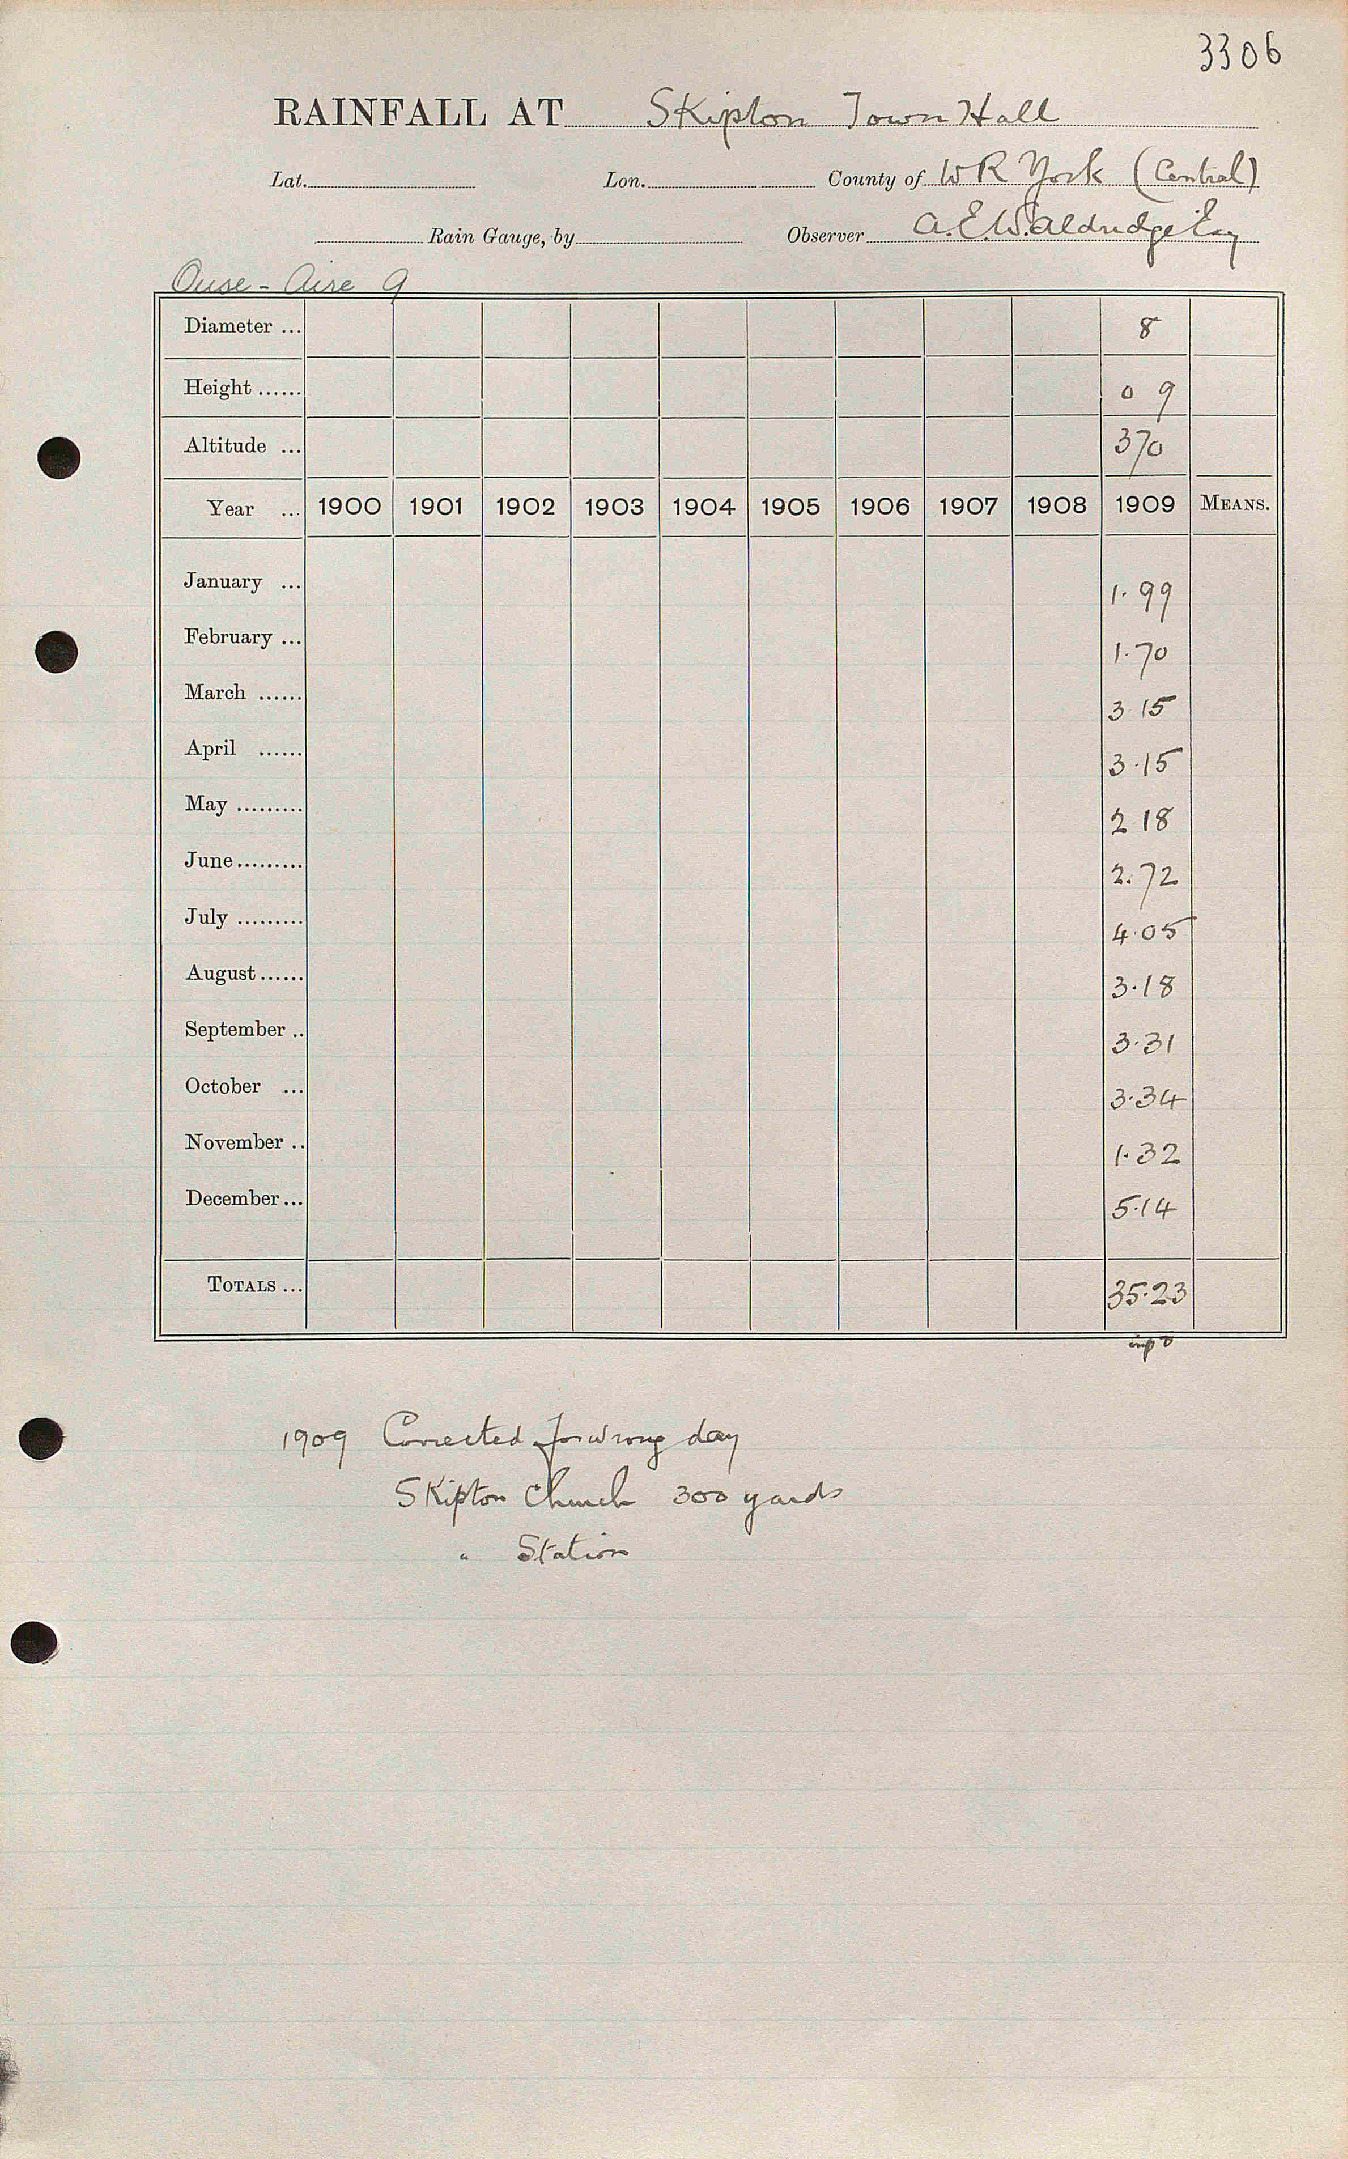 3306
RAINFALL AT Skipton Town Hall
Lat. Lon. County of W R York (Central)
Rain Gauge, by Observer A. E. W. Aldridge Esq
Ouse - Aire 9
Diameter ... 8
Height ...... 0 9
Altitude ... 370
Year ... 1900 1901 1902 1903 1904 1905 1906 1907 1908 1909 MEANS.
January ... 1.99
February ... 1.70
March ...... 3 15
April ...... 3.15
May ......... 2 18
June ......... 2.72
July ......... 4.05
August ...... 3.18
September .. 3.31
October ... 3.34
November .. 1.32
December ... 5.14
TOTALS ... 35.23
1909 Corrected for wrong day
Skipton Church 300 yards
" Station